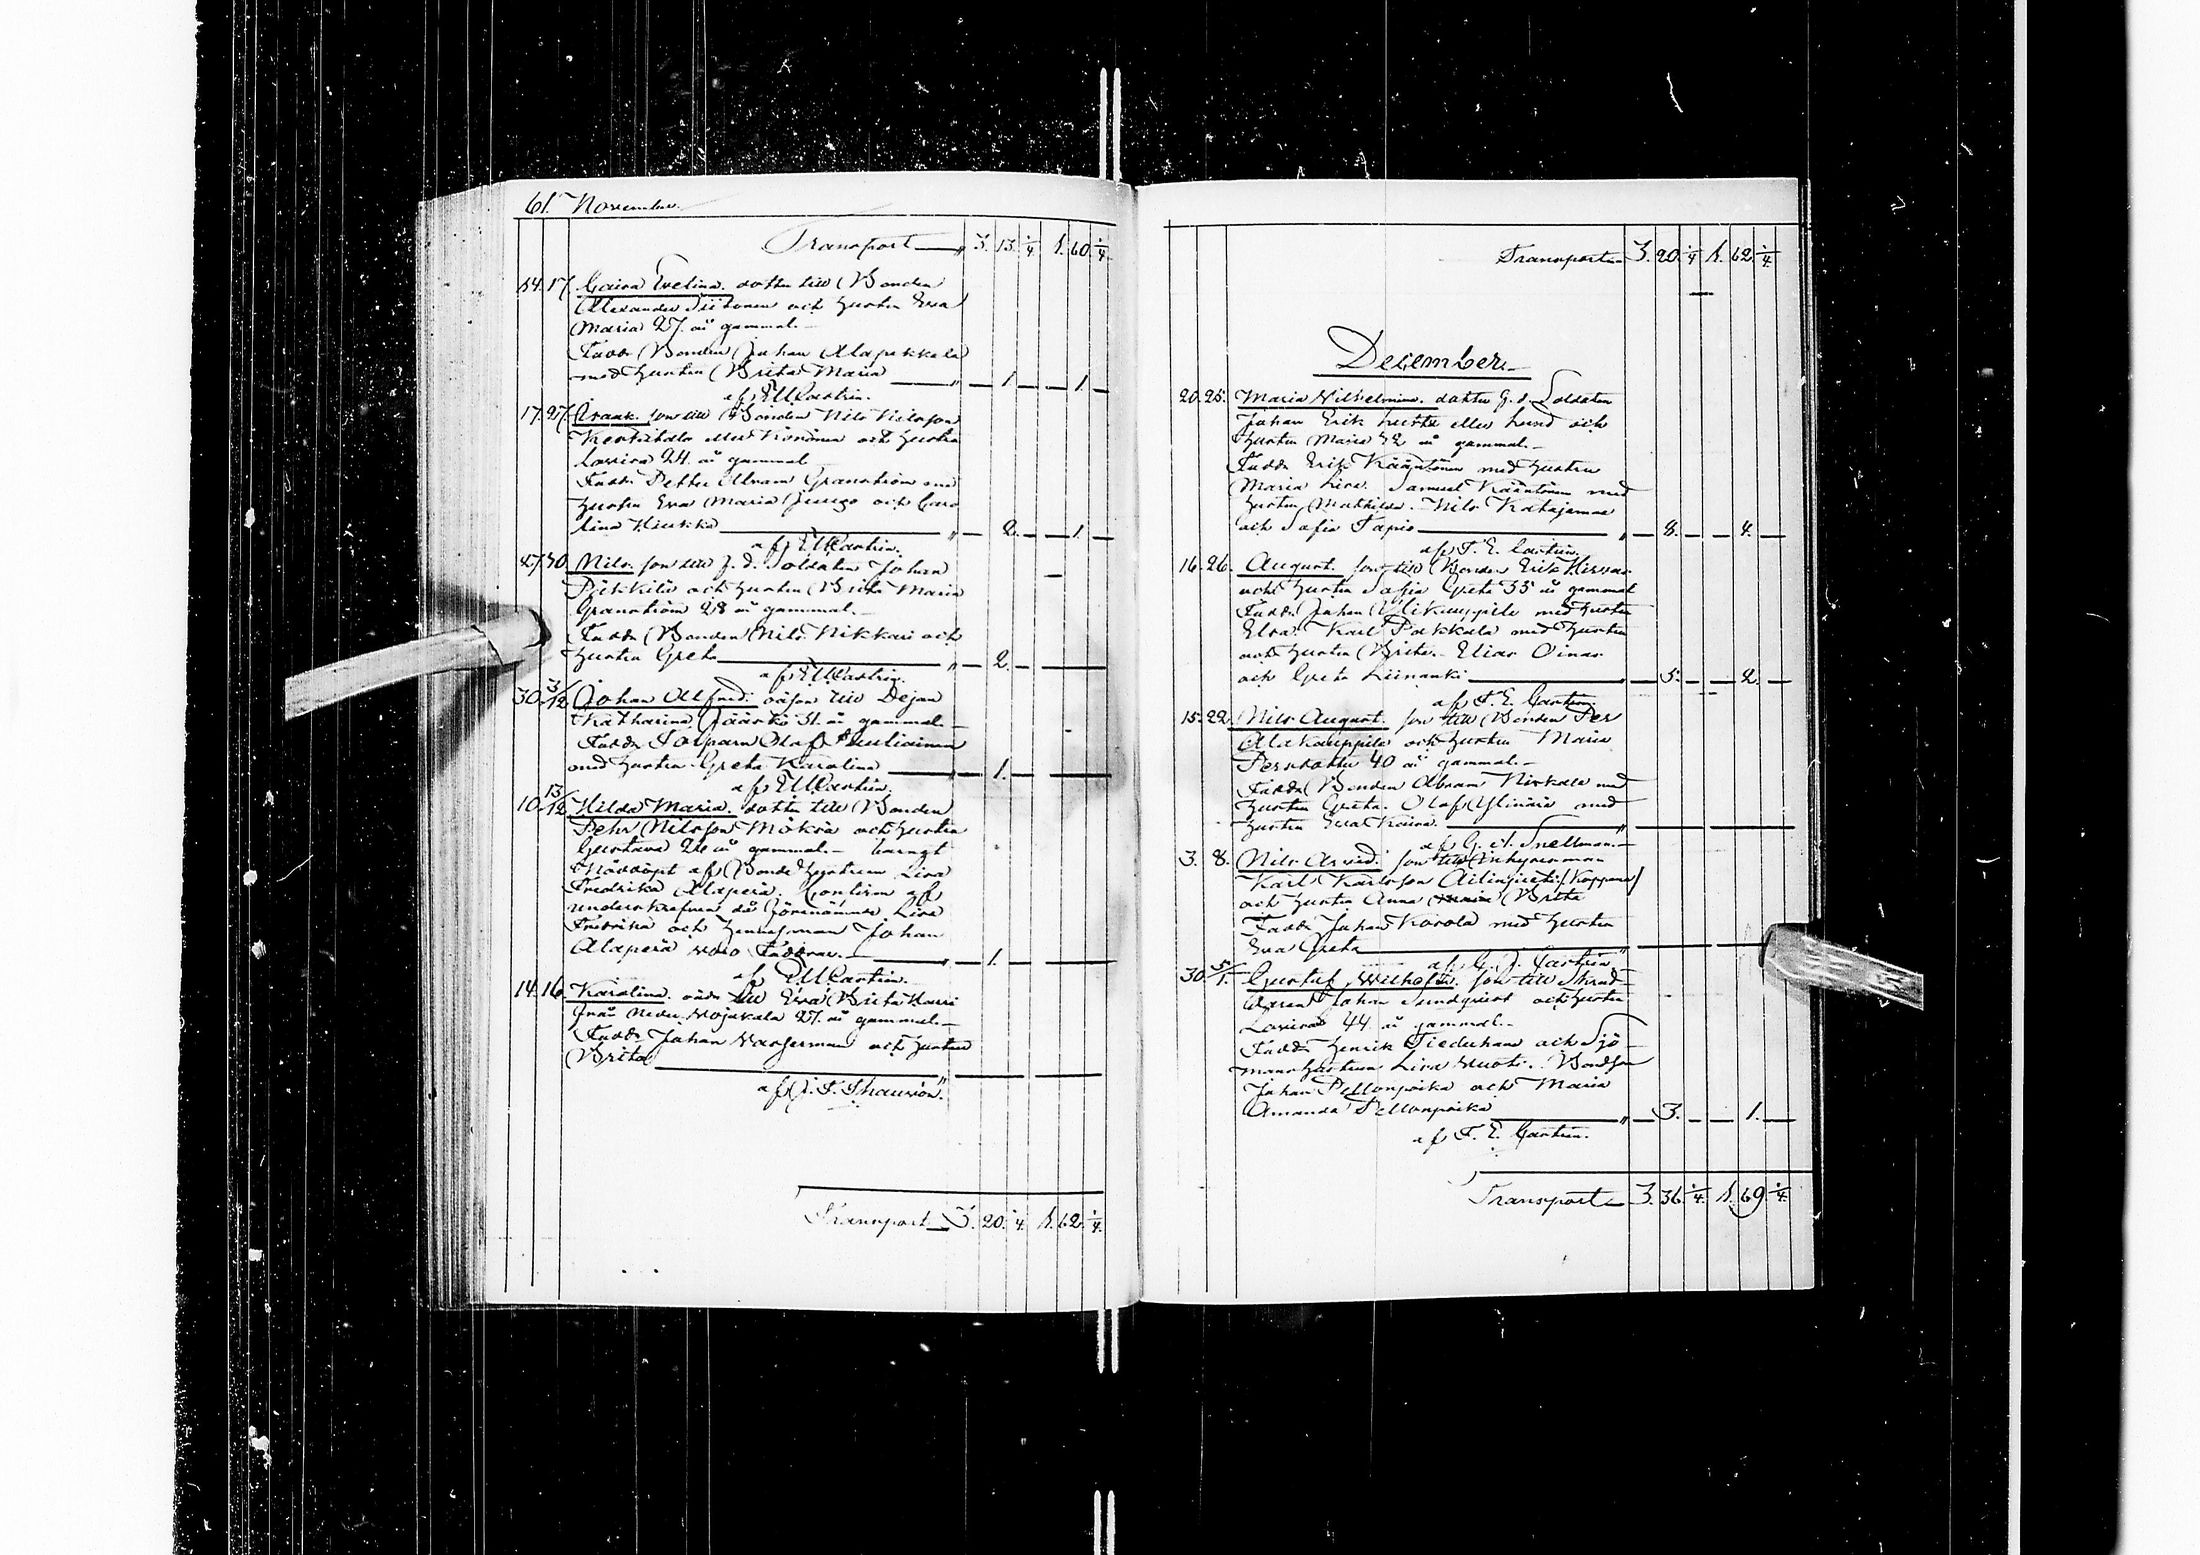 61. November.
Transport " 3. 13. 1/4 1. 60. 1/4.
14. 17. Caisa Evelina. dotter till Bonden
Alexander Tiitonen och hustru Eva
Maria 27. år gammal.
Fadd: Bonden Johan Alapekkala
med hustru Brita Maria " 1. 1.
af E M Castrén.
17. 27. Isaak. son till Bonden Nils Nilsson
eller Könönen och hustru
Lovisa 24. år gammal
Fadd: Petter Abram Granström med
hustru Eva Maria Junge och Caro
lina Kiukka " 2. 1.
af E M Castrén.
27. 30. Nils. son till f. d. Soldaten Johan
Pikkilä och hustru Brita Maria
Granström 28 år gammal.
Fadd: Bonden Nils Nikkari och
hustru Greta " 2.
af E M Castrén.
30. 3/12 Johan Alfred. oä son till Dejan
Katharina Jääskö 31. år gammal.
Fadd: Torparn Olof Pauliainen
med hustru Greta Karolina " 1.
af E M Castrén.
10. 13/12 Hilda Maria. dotter till Bonden
Pehr Nilsson Mökrä och hustru
Gustava 26 år gammal.
Nöddöpt af Bonde hustrun Lisa
Fredrika Alaperä. Confirm af
undertecknad då förenämnde Lisa
Fredrika och hemmasman Johan
Alaperä voro Faddrar. " 1.
af E M Castrén.
14. 16. Karolina. oä dr till Eva Brita Harri
från Neder Vojakala 27. år gammal.
Fadd: Johan Wasserman och hustru
Brita "
af J. F. Thauvón.
Transport 3. 20. 1/4 1. 62. 1/4.
Transport 3. 20. 1/4 1. 62. 1/4.
December.
20. 25. Maria Vilhelmina. dotter f. d. Soldaten
Johan Erik Lustu eller Lund och
hustru Maria 42 år gammal.
Fadd: Erik Kääntönen med hustru
Maria Lisa. Samuel Kääntönen med
hustru Mathilda. Nils Katajamaa
och Sofia Tapio " 8. 4.
af F. E. Castrén.
16. 26. August. son till Bonden Erik Hirvas
och hustru Sofia Greta 35 år gammal
Fadd: Johan Ylikauppila med hustru
Elsa. Karl Pakkala med hustru
och hustru Brita. Elias Oinas
och Greta Liinanki " 5. 2.
af F. E. Castrén.
15. 22. Nils August. son till Bonden Per
Alakauppila och hustru Maria
Persdotter 40 år gammal.
Fadd: Bonden Abram Nirkala med
hustru Greta. Olof Ylinärä med
hustru Eva Kaisa. "
af G. A. Snellman.
3. 8. Nils Arvid. son till Inhysesman
Karl Karlsson Ailinpieti/Koppana/
och hustru Anna Brita
Fadd: Johan Korola med hustru
Eva Greta
af G. J. Castrén.
30. 5/1. Gustaf Wilhelm. son till Skräd-
daren Johan Sundqvist och hustru
Lovisa 44. år gammal.
Fadd: Henrik Fiederhan och Sjö
mans hustrun Lisa Ruoti. Bondson
Johan Pellonpoika och Maria
Amanda Pellonpoika " 3. 1.
af F. E. Castrén.
Transport 3. 36. 1/4. 1. 69. 1/4.